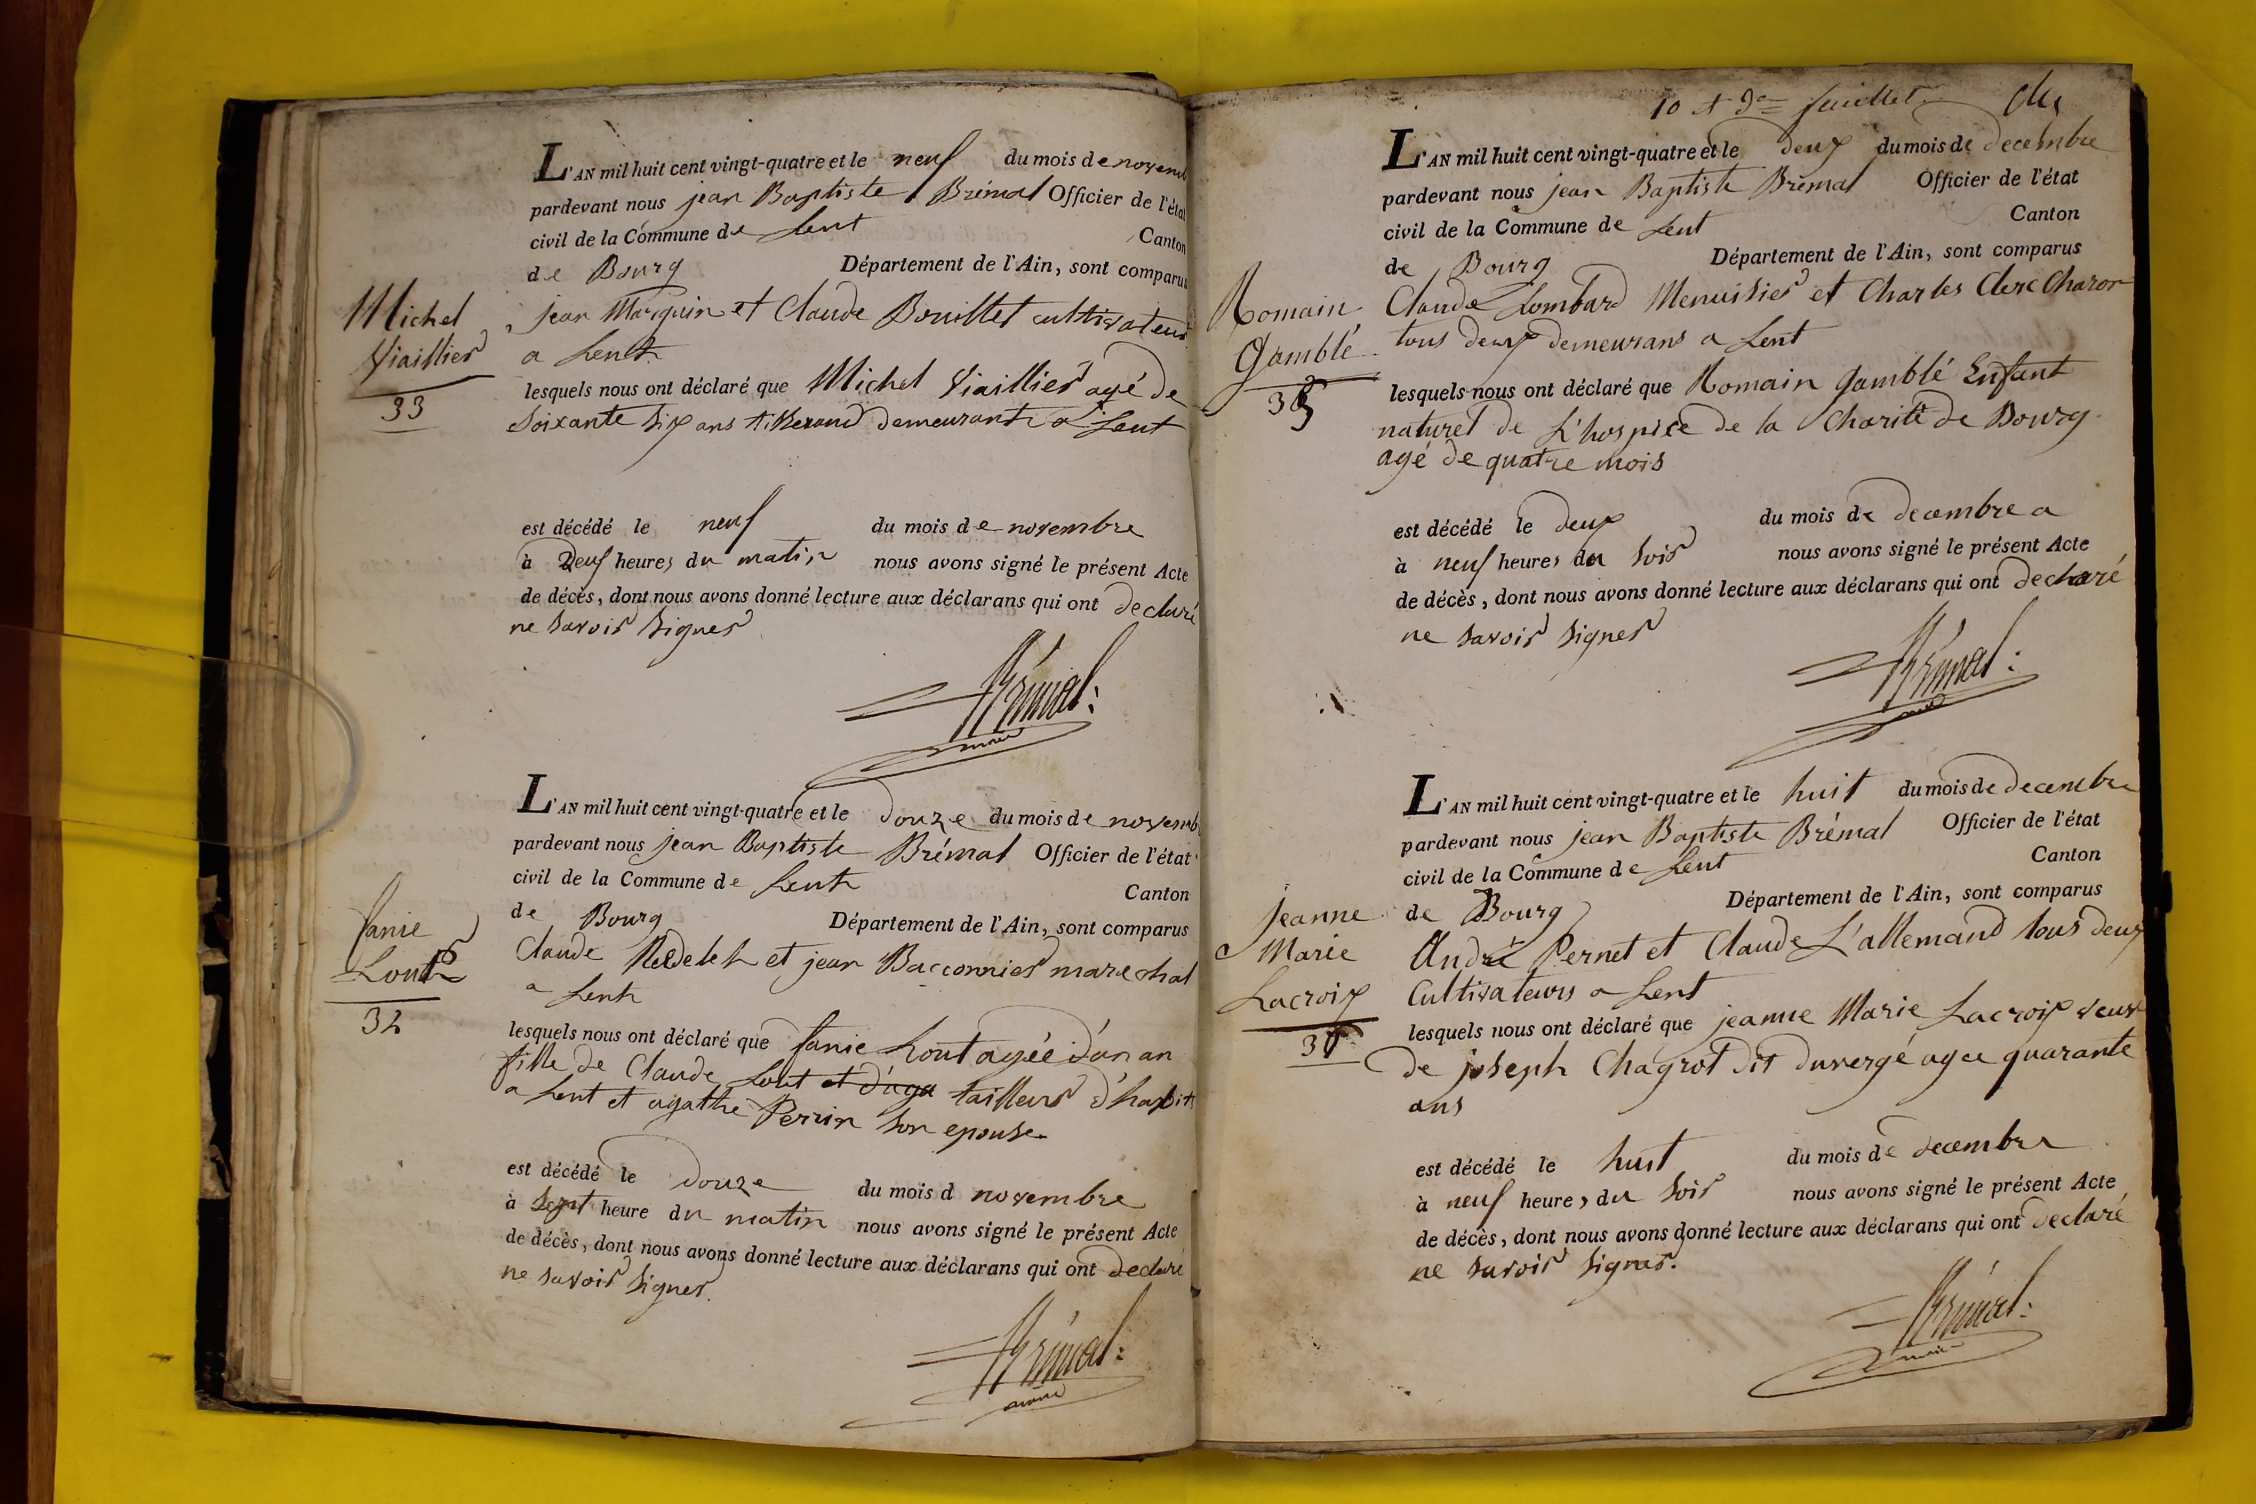 L'AN mil huit cent vingt-quatre et le neuf du mois de novemb
pardevant nous jean Baptiste Brémal Officier de l'état
civil de la Commune de Lent Canton
de Bourg Département de l'Ain, sont comparus
Michel
Viaillier
33
jean Marguin et Claude Bouillet cultivateurs
a Lent
lesquels nous ont déclaré que Michel Viaillier agé de
soixante six ans tisserand demeurant a Lent
est décédé le neuf du mois de novembre
à neuf heures du matin nous avons signé le présent Acte
de décès, dont nous avons donné lecture aux déclarans qui ont declaré
ne savoir signer
Brémal
maire
L'AN mil huit cent vingt-quatre et le douze du mois de novemb
pardevant nous jean Baptiste Brémal Officier de l'état
civil de la Commune de Lent Canton
de Bourg Département de l'Ain, sont comparus
fanie
Lout
34
Claude et jean Bacconnier marechal
a Lent
lesquels nous ont déclaré que fanie Lout agée d'un an
fille de Claude Lout et d'aga tailleur d'habits
a Lent et agathe Perrin son epouse
est décédé le douze du mois d novembre
à sept heure du matin nous avons signé le présent Acte
de décès, dont nous avons donné lecture aux déclarans qui ont declaré
ne savoir signer.
Brémal
maire
10 et 9e feuillet
L'AN mil huit cent vingt-quatre et le deux du mois de decembre
pardevant nous jean Baptiste Brémal Officier de l'état
civil de la Commune de Lent Canton
de Bourg Département de l'Ain, sont comparus
Romain
Gamblé
35
Claude Lombard Menuisier et Charles Clerc Charon
tous deux demeurans a Lent
lesquels nous ont déclaré que Romain Gamblé Enfant
naturel de L'hospice de la Charité de Bourg
agé de quatre mois
est décédé le deux du mois de decembre a
à neuf heures du soir nous avons signé le présent Acte
de décès, dont nous avons donné lecture aux déclarans qui ont declaré
ne savoir signer
Brémal
maire
L'AN mil huit cent vingt-quatre et le huit du mois de decembre
pardevant nous jean Baptiste Brémal Officier de l'état
civil de la Commune de Lent Canton
de Bourg Département de l'Ain, sont comparus
jeanne
Marie
Lacroix
36
André Pernet et Claude L'allemand tous deux
Cultivateurs a Lent
lesquels nous ont déclaré que jeanne Marie Lacroix veuve
de joseph Chagrot dit duvergé agee quarante
ans
est décédé le huit du mois de decembre
à neuf heures du soir nous avons signé le présent Acte
de décès, dont nous avons donné lecture aux déclarans qui ont declaré
ne savoir signer.
Brémal
maire